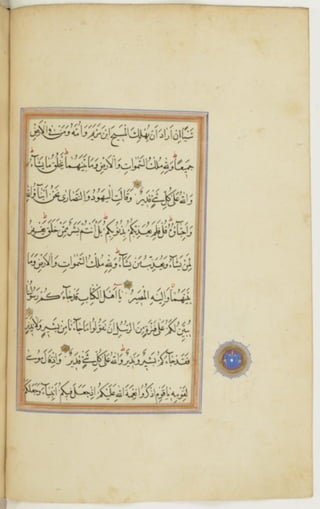 شَيْئًا اِنْ اَرَادَ اَنْ يُهْلِكَ الْمَسِيحَ ابْنَ مَرْيَمَ وَاُمَّهُ وَمَنْ فِى الْاَرْضِ
جَمِيعًا وَلِلّٰهِ مُلْكُ السَّمٰوَاتِ وَالْاَرْضِ وَمَا بَيْنَهُمَا يَخْلُقُ مَا يَشَاءُ
وَاللّٰهُ عَلٰى كُلِّ شَىْءٍ قَدِيرٌ وَقَالَتِ الْيَهُودُ وَالنَّصَارٰى نَحْنُ اَبْنَاءُ اللّٰهِ
وَاَحِبَّاؤُهُ قُلْ فَلِمَ يُعَذِّبُكُمْ بِذُنُوبِكُمْ بَلْ اَنْتُمْ بَشَرٌ مِمَّنْ خَلَقَ يَغْفِرُ
لِمَنْ يَشَاءُ وَيُعَذِّبُ مَنْ يَشَاءُ وَلِلّٰهِ مُلْكُ السَّمٰوَاتِ وَالْاَرْضِ وَمَا
بَيْنَهُمَا وَاِلَيْهِ الْمَصِيرُ يَا اَهْلَ الْكِتَابِ قَدْ جَاءَكُمْ رَسُولُنَا
يُبَيِّنُ لَكُمْ عَلٰى فَتْرَةٍ مِنَ الرُّسُلِ اَنْ تَقُولُوا مَا جَاءَنَا مِنْ بَشِيرٍ وَلَا نَذِيرٍ
فَقَدْ جَاءَكُمْ بَشِيرٌ وَنَذِيرٌ وَاللّٰهُ عَلٰى كُلِّ شَىْءٍ قَدِيرٌ وَاِذْ قَالَ مُوسٰى
لِقَوْمِهِ يَا قَوْمِ اذْكُرُوا نِعْمَةَ اللّٰهِ عَلَيْكُمْ اِذْ جَعَلَ فِيكُمْ اَنْبِيَاءَ وَجَعَلَكُمْ